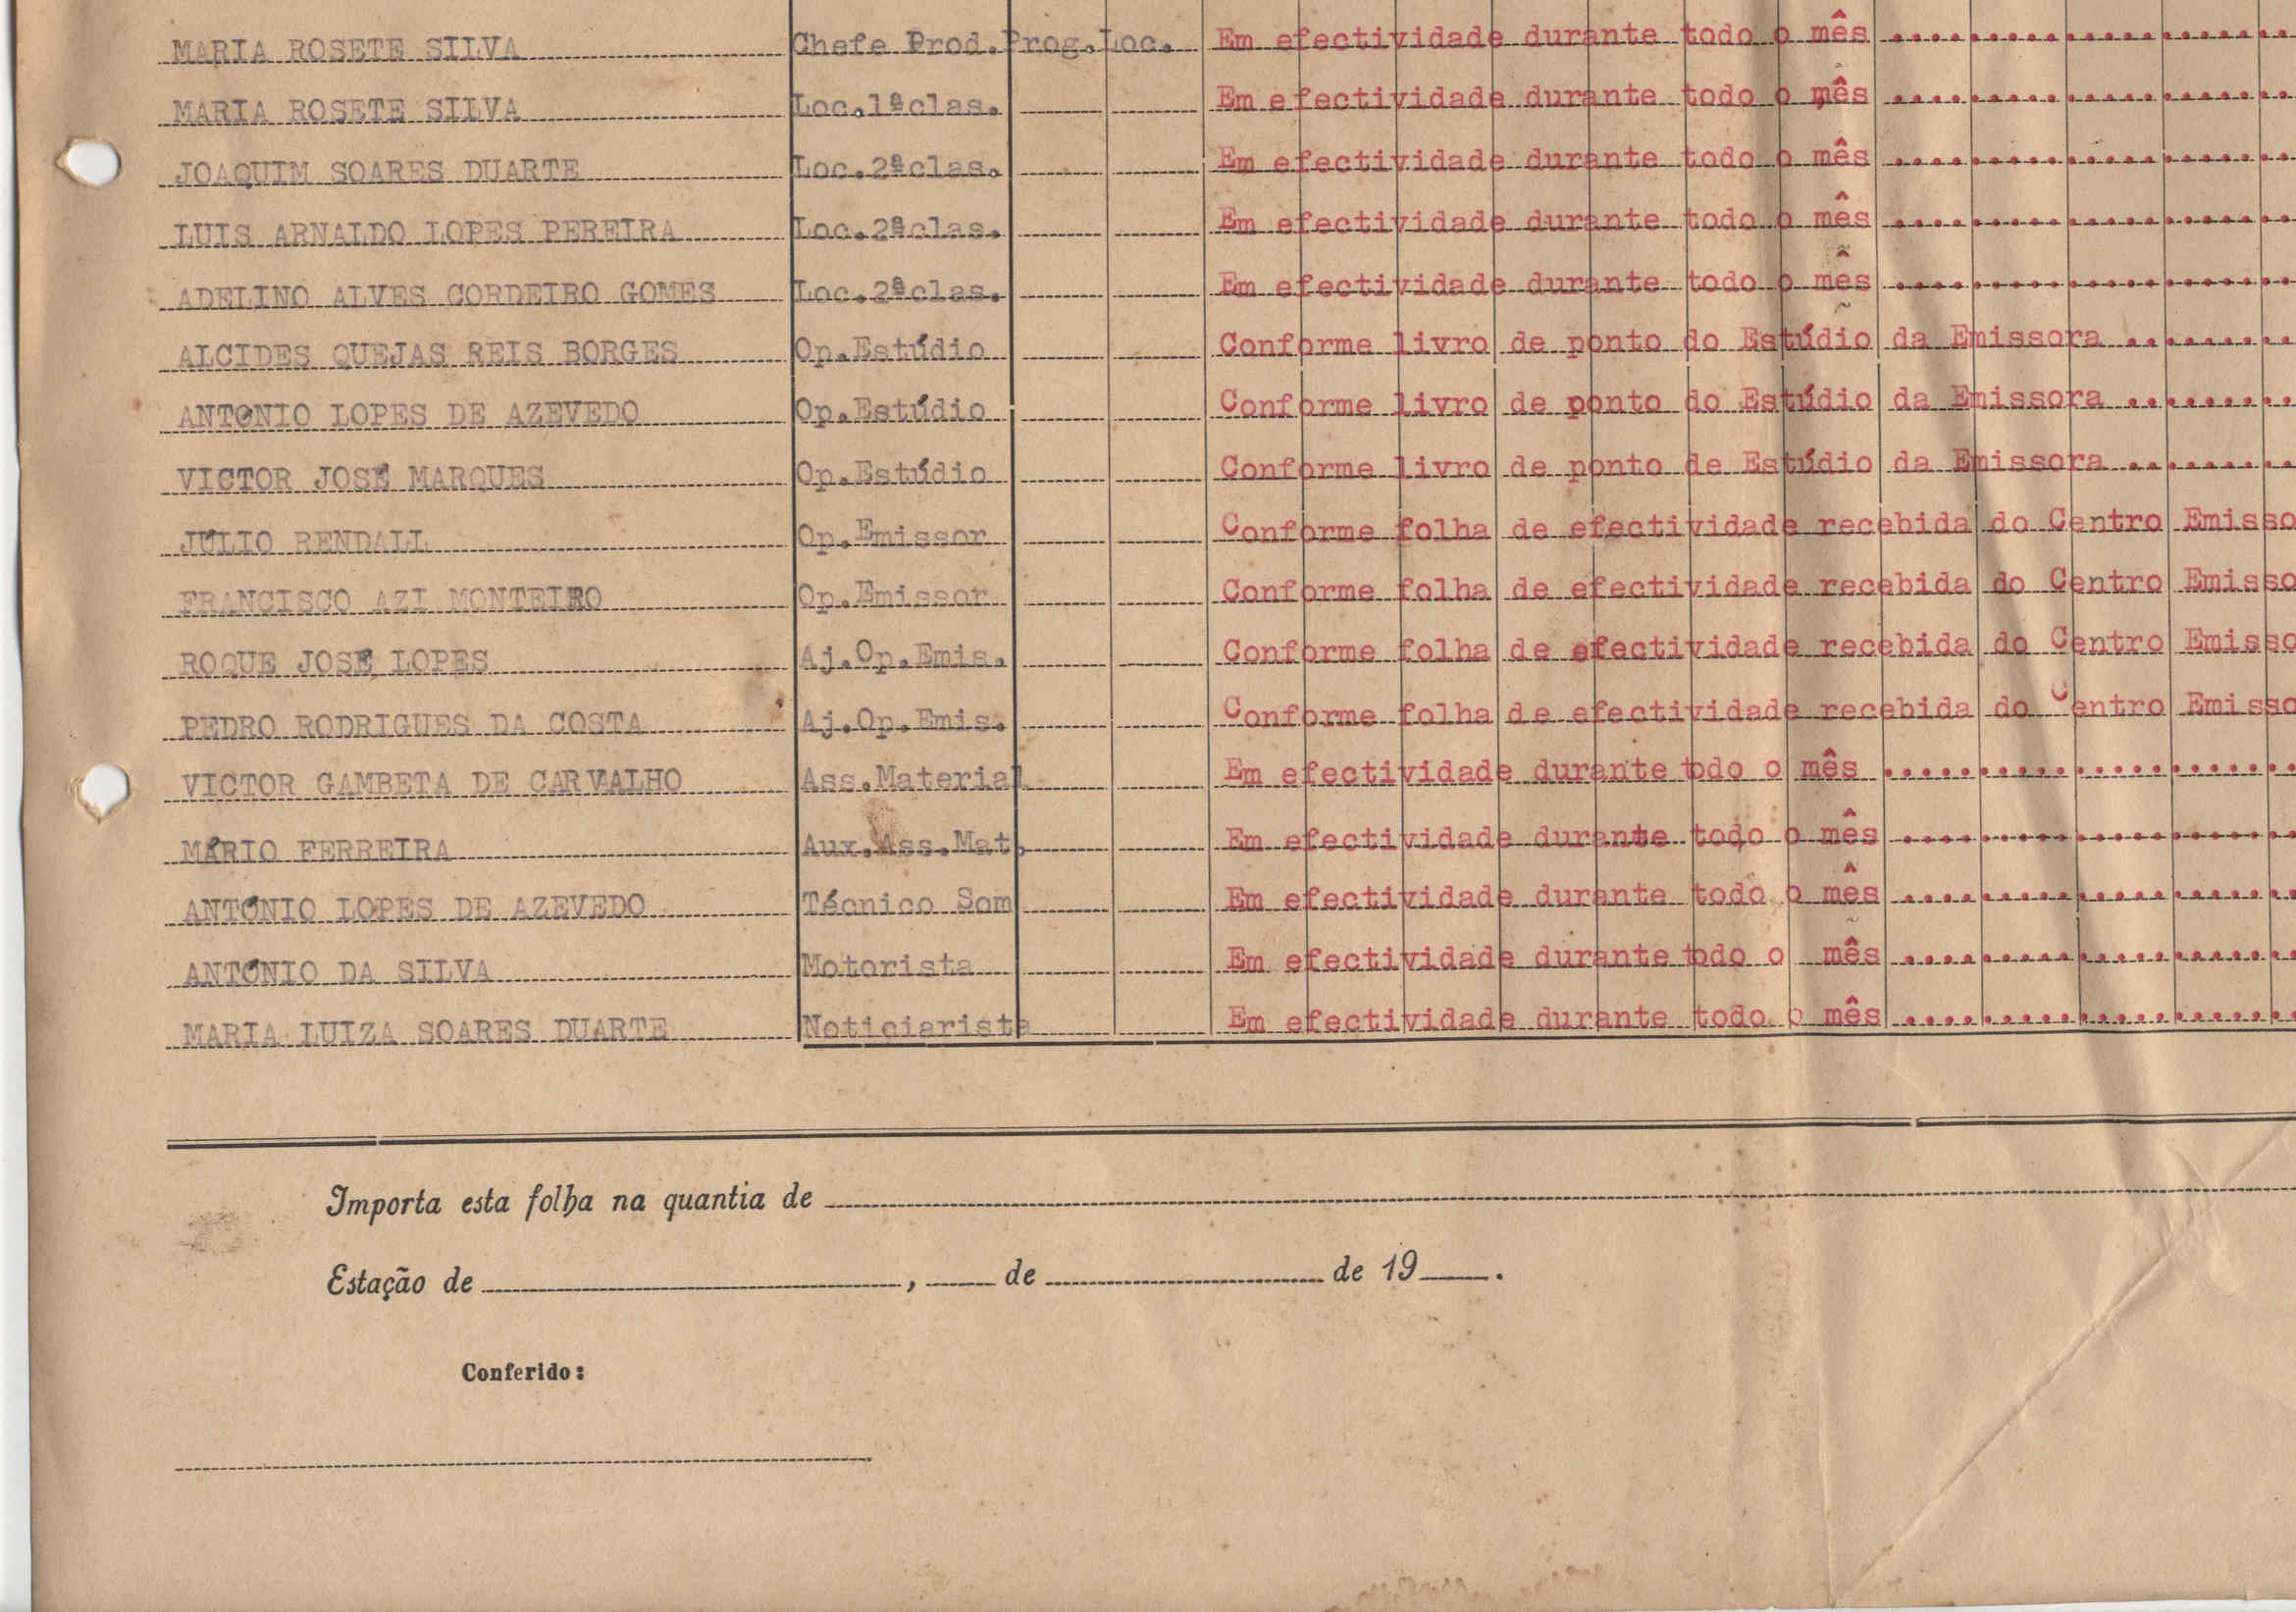 MARIA ROSETE SILVA Chefe Prod.Prog.Loc. Em efectividade durante todo o mês
MARIA ROSETE SILVA Loc.1ªclas. Em efectividade durante todo o mês
JOAQUIM SOARES DUARTE Loc.2ªclas. Em efectividade durante todo o mês
LUIS ARNALDO LOPES PEREIRA Loc.2ªclas. Em efectividade durante todo o mês
ADELINO ALVES CORDEIRO GOMES Loc.2ªclas. Em efectividade durante todo o mês
ALCIDES QUEJAS REIS BORGES Op.Estúdio Conforme livro de ponto do Estúdio da Emissora
ANTONIO LOPES DE AZEVEDO Op.Estúdio Conforme livro de ponto do Estúdio da Emissora
VICTOR JOSÉ MARQUES Op.Estúdio Conforme livro de ponto de Estúdio da Emissora
JÚLIO RENDALL Op.Emissor Conforme folha de efectividade recebida do Centro Emisso
FRANCISCO AZI MONTEIRO Op.Emissor Conforme folha de efectividade recebida do Centro Emisso
ROQUE JOSÉ LOPES Aj.Op.Emis. Conforme folha de efectividade recebida do Centro Emisso
PEDRO RODRIGUES DA COSTA Aj.Op.Emis. Conforme folha de efectividade recebida do Centro Emisso
VICTOR GAMBETA DE CARVALHO Ass.Material Em efectividade durante todo o mês
MÁRIO FERREIRA Aux.Ass.Mat. Em efectividade durante todo o mês
ANTÓNIO LOPES DE AZEVEDO Técnico Som Em efectividade durante todo o mês
ANTÓNIO DA SILVA Motorista Em efectividade durante todo o mês
MARIA LUIZA SOARES DUARTE Noticiarista Em efectividade durante todo o mês
Importa esta folha na quantia de
Estação de , de de 19 .
Conferido: